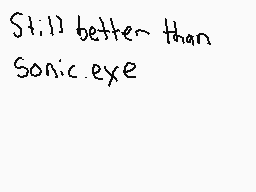 Still better than
Sonic.exe